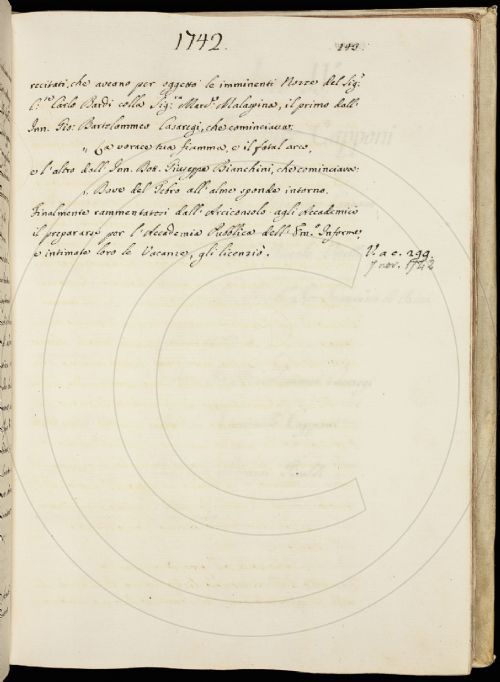 1742.
193.
recitati, che aveano per oggetto le imminenti Nozze del Sig.r
C.te Carlo Bardi colla Sig.ra March.a Malaspina, il primo dall'
Inn. Gio: Bartolommeo Casaregi, che cominciava:
„ La vorace tua fiamma, e il fatal arco,
e l'altro dall' Inn. Dott. Giuseppe Bianchini, che cominciava:
„ Dove del Tebro all' alme sponde intorno.
Finalmente rammentatosi dall' Arciconsolo agli Accademici
il prepararsi per l'Accademia Pubblica dell' Inn.o Informe,
e intimate loro le Vacanze, gli licenziò.
V. a c. 299.
7 nov. 1742
Capponi